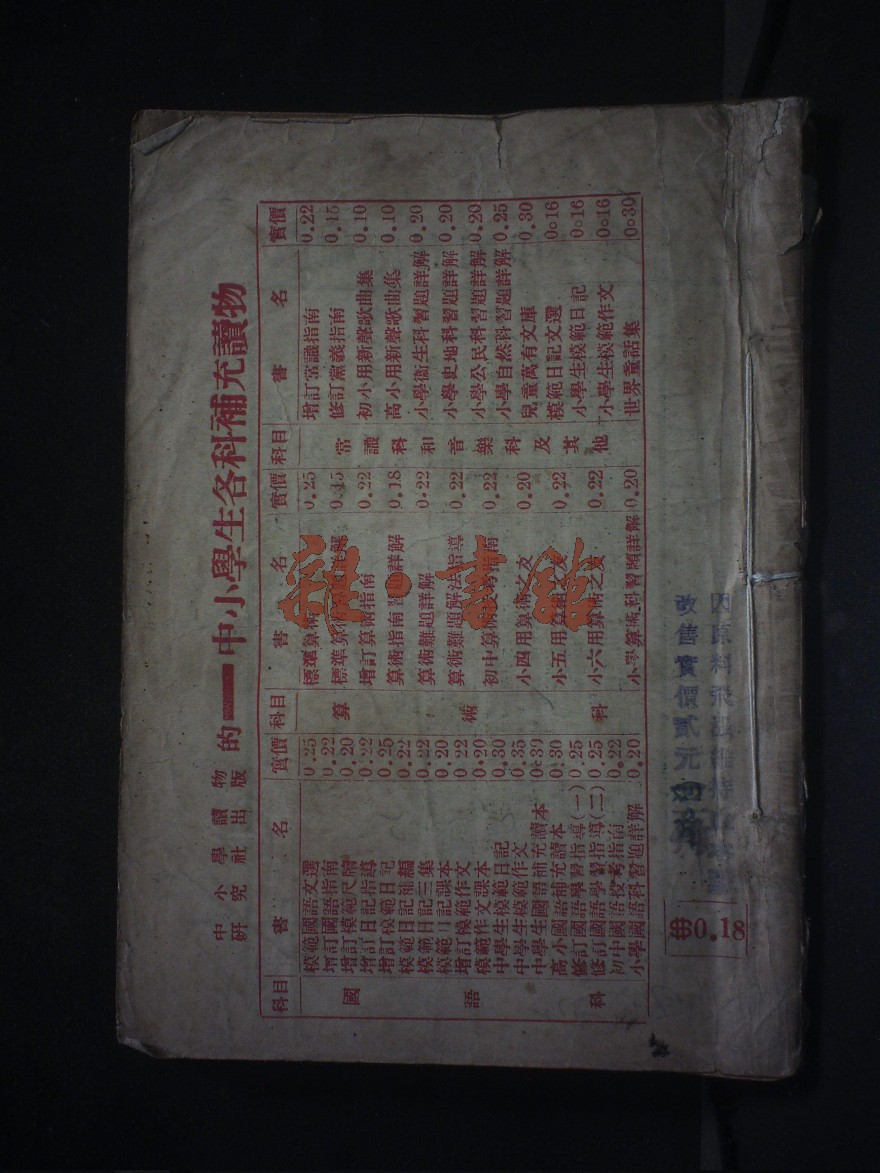 中小學讀物
研究社出版
的一中小學生各科補充讀物
科目 書名 實價
國語科
模範國語文選 0.25
增訂國語指南 0.22
增訂模範尺牘 0.20
增訂日記指導 0.22
增訂模範日記 0.25
模範日記補編 0.22
模範日記三集 0.22
模範日記課本 0.20
增訂模範作文 0.22
模範作文課本 0.20
中學生模範日記 0.30
中學生模範作文 0.35
中學生國語補充讀本 0.39
高小國語補充讀本 0.30
修訂國語學習指導(一) 0.25
修訂國語學習指導(二) 0.25
初中國語投考指南 0.22
小學國語科習題詳解 0.20
科目 書名 實價
算術科
標準算術 解 0.25
標準算術 詳解 0.15
增訂算術指南 0.22
算術指南 詳解 0.18
算術難題詳解 0.22
算術難題解法指導 0.22
初中算術投考指南 0.22
小四用算術之友 0.20
小五用算術之友 0.22
小六用算術之友 0.22
小學算術科習題詳解 0.20
科目 書名 實價
常識科和音樂科及其他
增訂常識指南 0.22
修訂黨義指南 0.15
初小用新聲歌曲集 0.10
高小用新聲歌曲集 0.10
小學衞生科習題詳解 0.20
小學史地科習題詳解 0.20
小學公民科習題詳解 0.20
小學自然科習題詳解 0.25
兒童萬有文庫 0.30
模範日記文選 0o16
小學生模範日記 0o16
小學生模範作文 0o16
世界童話集 0o30
因原料飛漲
改售實價貳元
0.18